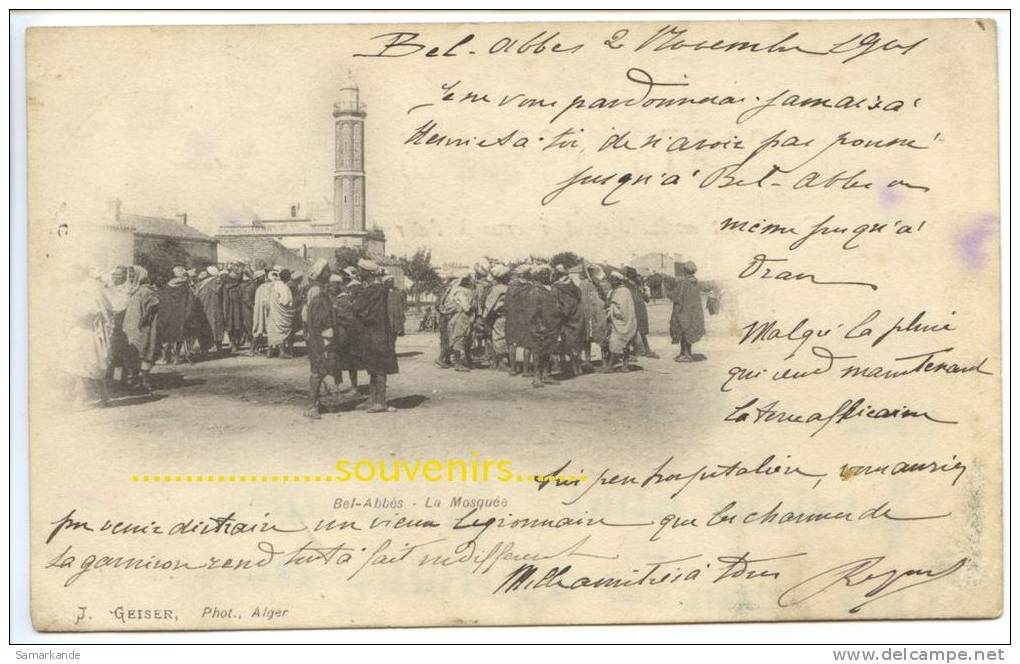 Bel-Abbes 2 Novembre 1901
Je ne vous pardonnerai jamais à
Henri et à toi, de n'avoir pas poussé
jusqu'à Bel-Abbes ou
même jusqu'à
Oran
Malgré la pluie
qui rend maintenant
la terre africaine
si peu hospitalière, vous auriez
pu venir distraire un vieux légionnaire que les charmes de
la garnison rend tout à fait indifférent
Mille amitiés à tous
Bel-Abbès - La Mosquée
J. GEISER, Phot., Alger
souvenirs
Samarkande
www.delcampe.net